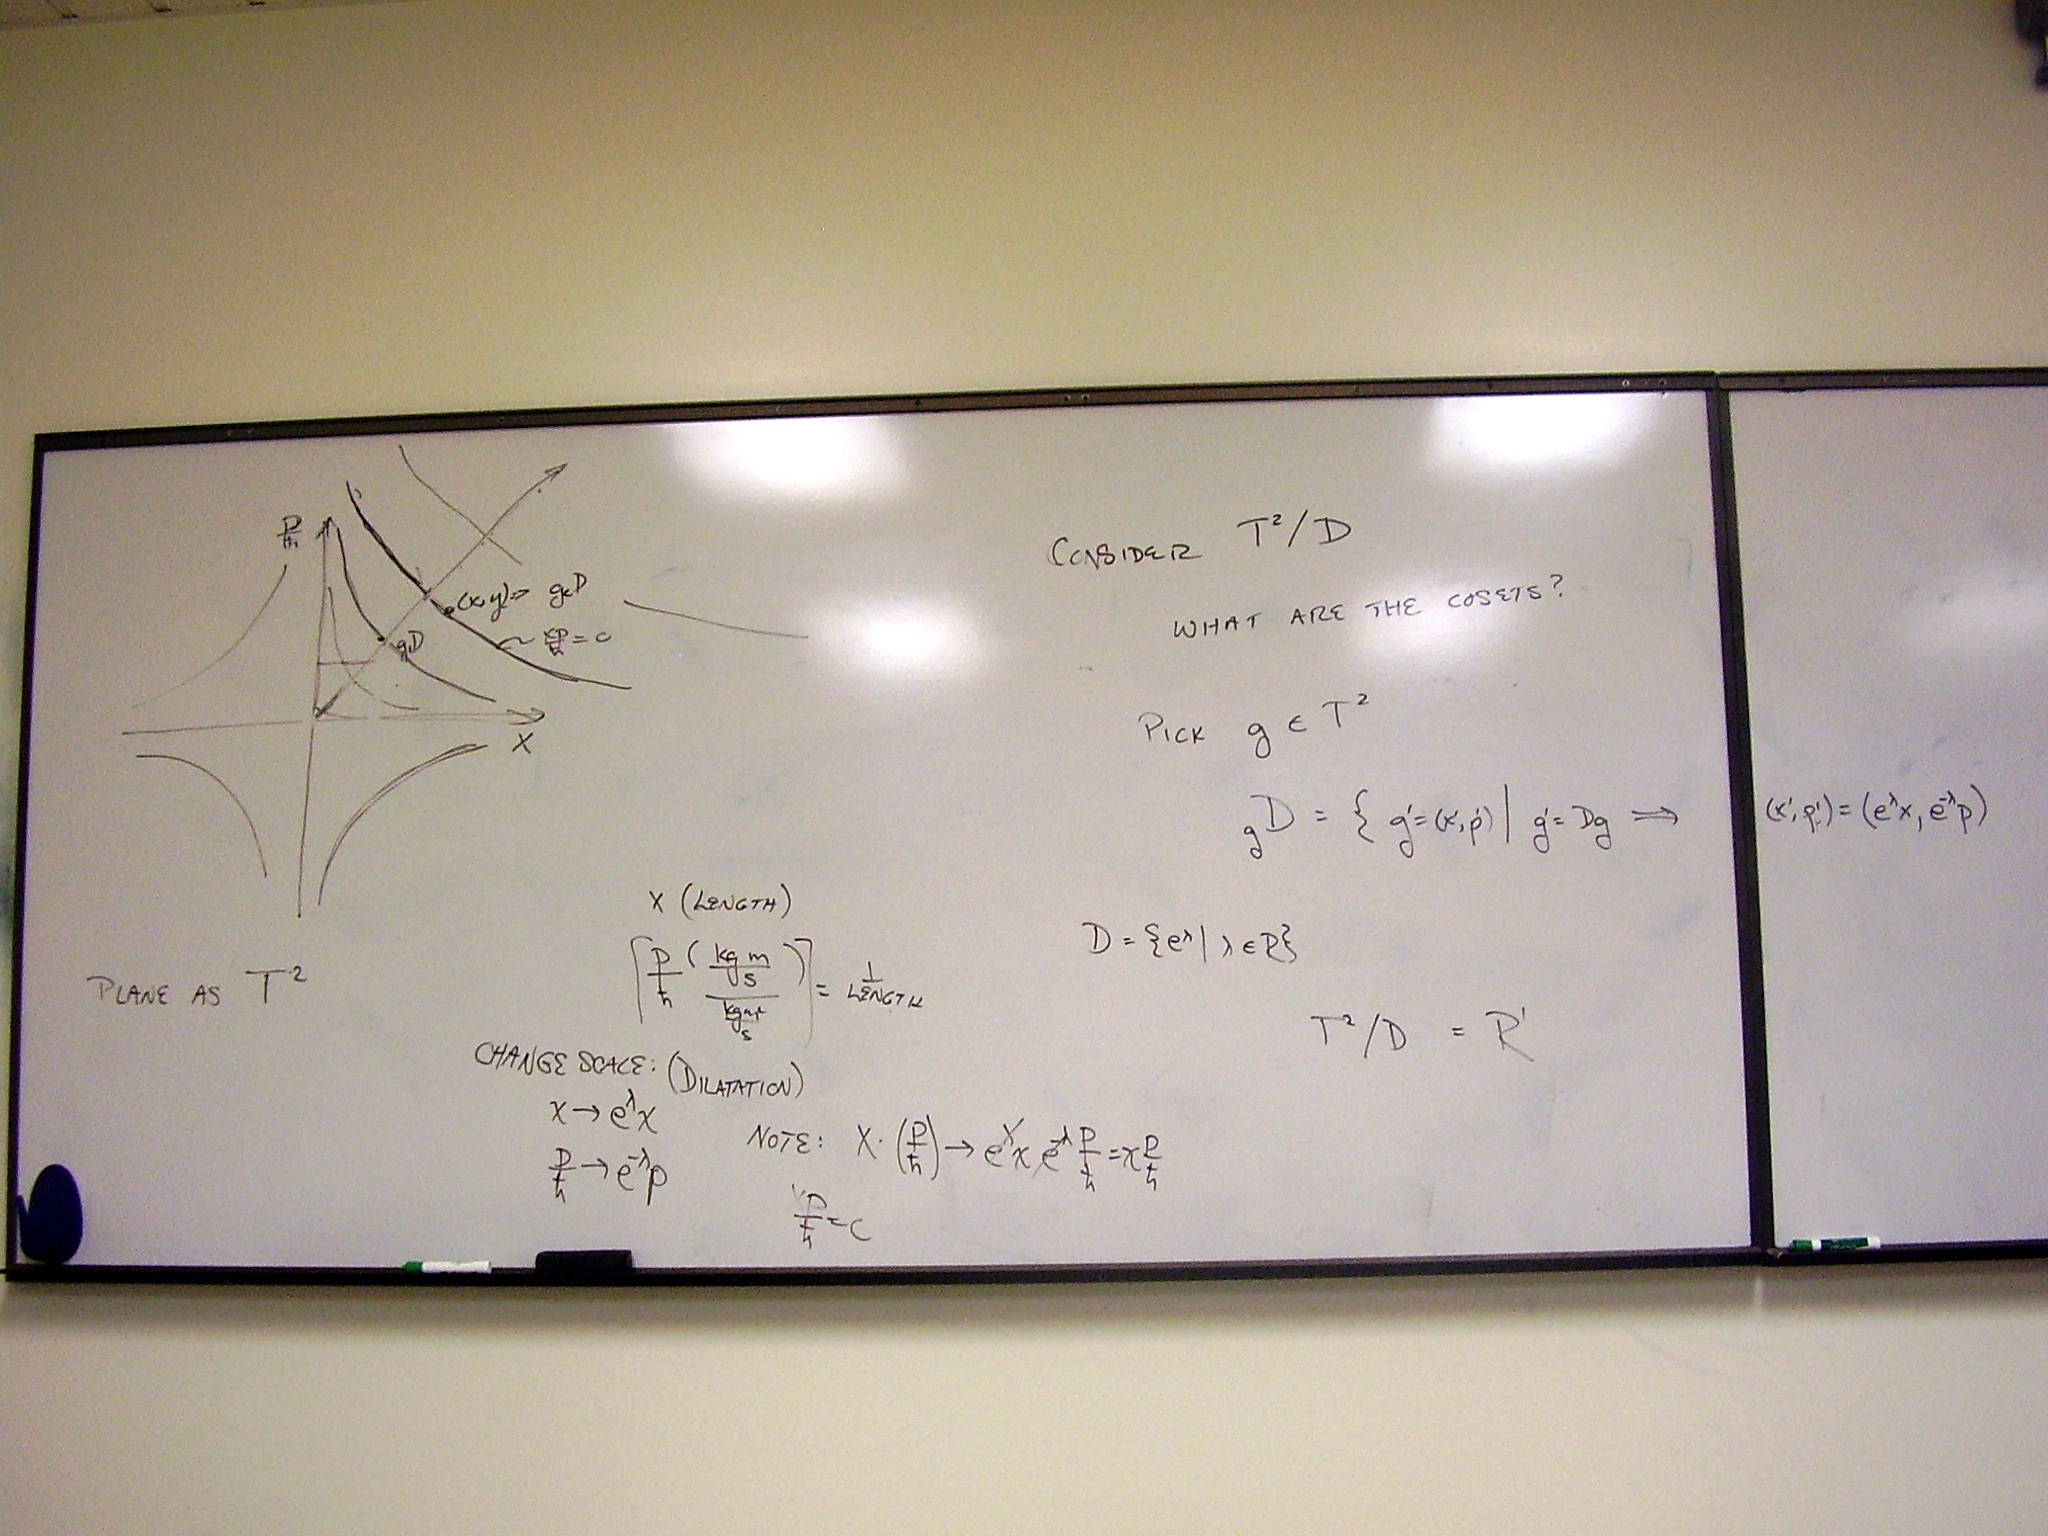 p/ħ
(x,y) ⇒ gεD
xp/ħ = c
gD
X
PLANE AS T²
X (LENGTH)
[p/ħ ((kg m/s)/(kg m²/s))] = 1/LENGTH
CHANGE SCALE: (DILATATION)
x → e^λ x
p/ħ → e^-λ p
NOTE: X·(p/ħ) → e^λ x e^-λ p/ħ = x p/ħ
xp/ħ = c
CONSIDER T²/D
WHAT ARE THE COSETS?
PICK g ∈ T²
gD = { g' = (x',p') | g' = Dg ⇒ (x',p') = (e^λ x, e^-λ p)
D = {e^λ | λ ∈ R}
T²/D = R¹